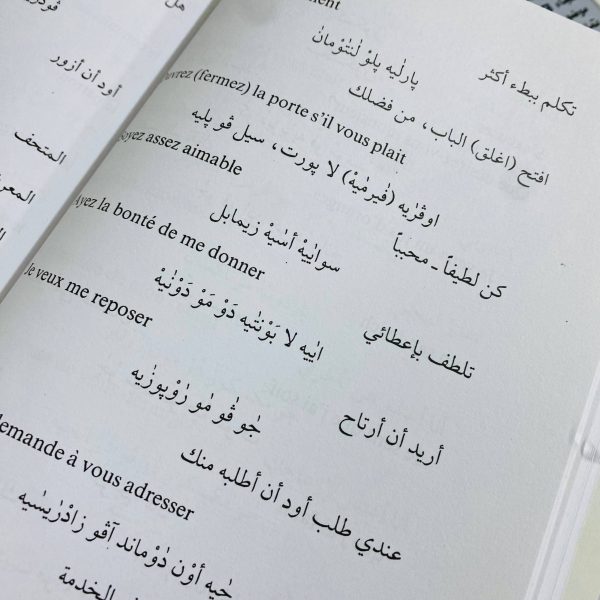 هل
أود أن أزور
المتحف
تكلم ببطء أكثر
پارليه پلوْ لنتوْمانْ
افتح (اغلق) الباب، من فضلك
vrez (fermez) la porte s'il vous plait
اوڤرٰيه (فٰيرمٰيهْ) لا پورت، سيل ڤو پليه
oyez assez aimable
كن لطيفاً - محبباً
سوايٰيهْ أسٰيهْ زيمابل
Ayez la bonté de me donner
تلطف بإعطائي
ايٰيه لا بَوْنتٰيه دَوْ مَوْ دَوْنٰيهْ
Je veux me reposer
أريد أن أرتاح
جٰو ڤٰو مٰو رٰوْپوزٰيه
demande à vous adresser
عندي طلب أود أن أطلبه منك
جٰيه أوْن دٰوْماند آڤو زادْرٰيسٰيه
الخدمة